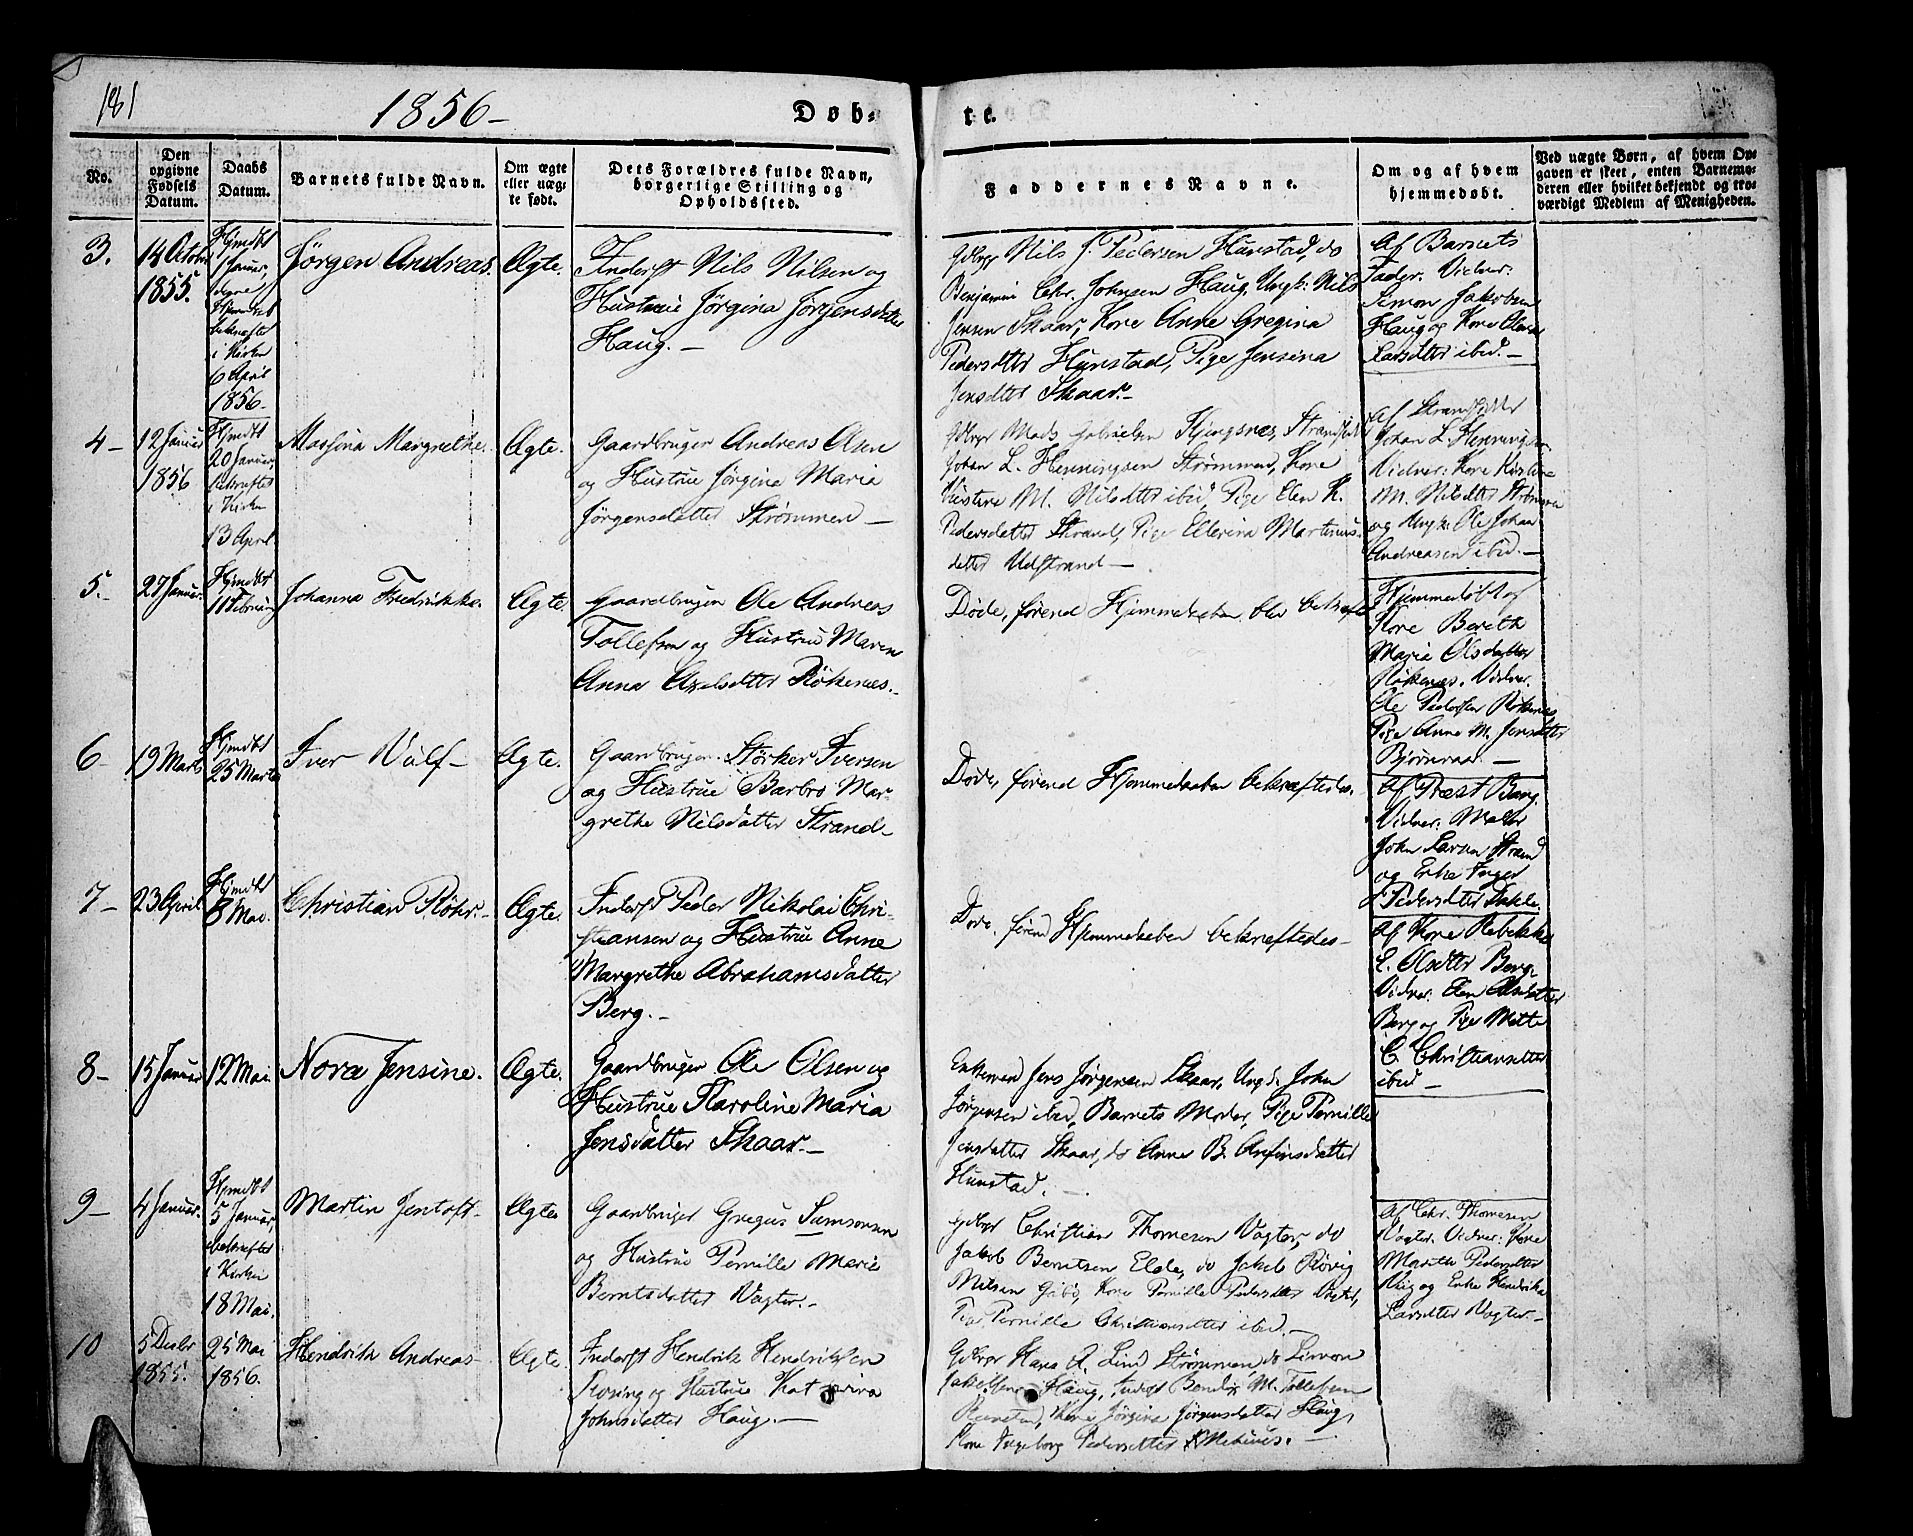 181
1856 –
Døb-
te.
No.
Den opgivne Fødsels Datum.
Daabs Datum.
Barnets fulde Navn.
Om ægte eller uæg-te født.
Dets Forældres fulde Navn, borgerlige Stilling og Opholdssted.
Faddernes Navne.
Om og af hvem hjemmedøbt.
Ved uægte Børn, af hvem Op-
gaven er skeet, enten Barnemo-
deren eller hvilket bekjendt og tro-
værdigt Medlem af Menigheden.
3.
14 Octobr
1855.
Hjmdbt
1 Januar,
Hjmdaab
bekræftet
i Kirken
6 April
1856–
Jørgen Andreas.
Ægte.
Inderst Nils Nilsen og
Hustrue Jørgina Jørgensdatter
Haug. –
Gdbrgr Nils J. Pedersen Hunstad, do
Benjamin Chr. Johnsen Haug, Ungk: Nils
Jensen Skaar, Kone Anne Gregina
Pedersdtter Hunstad, Pige Jensina
Jensdtter Skaar. –
Af Barnets
Fader. Vidner:
Simon Jakobsen
Haug og Kone Olava
Larsdtter ibid. –
4 –
12 Januar
1856
Hjmdbt
20 Januar,
bekræftet
i Kirken
13 April.
Margrethe.
Ægte.
Gaardbruger Andreas Olsen
og Hustrue Jørgina Maria
Jørgensdatter Strømmen –
Gdbrgr Mads Gabrielsen Kjengsnæs,
Johan L. Henningsen Strømmen, Kone
Kistine M. Nilsdtter ibid, Pige Elen K.
Pedersdatter Strand, Pige Ellerina Martinus-
detter Udstrand –
Af
Johan L. Henningsen
Vidner: Kone Kistine
M. Nilsdtter Strømmen
og Ungk: Ole Johan
Andreasen ibid. –
5. –
27 Januar.
Hjmdbt
11 Februar
Johanna Fredrikke.
Ægte.
Gaardbruger Ole Andreas
Tollefsen og Hustrue Maren
Anna Axelsdtter Røkenæs. –
Døde, førend Hjemmedaaben blev bekræftet
Hjemmedøbt af
Kone Berith
Maria Olsdatter
Røkenæs. Vidner.
Ole Pedersen Røkenæs
Pige Anne M. Jensdtter
Bjørnraa. –
6 –
19 Marts
Hjmdbt
25 Marts
Iver Wulf –
Ægte.
Gaardbruger Størker Iversen
og Hustrue Barbro Mar-
grethe Nilsdatter Strand –
Døde, førend Hjemmedaaben bekræftedes.
Af Præst Bang.
Vidner:
John Larsen Strand
og Enke Inger
Pedersdtter Dahle.
7 –
23 April.
Hjmdbt
8 Mai.
Christian Røhr –
Ægte
Inderst Peder Nikolai Chri-
stiansen og Hustrue Anne
Margrethe Abrahamsdatter
Berg. –
Døde, førend Hjemmedaaben bekræftedes –
Af Kone Rebekka
E. Olsdtter Berg.
Vidner: Elen Olsdatter
Berg og Pige Mette
C. Christiansdtter
ibid –
8 –
15 Januar
12 Mai
Nora Jensine.
Ægte.
Gaardbruger Ole Olsen og
Hustrue Karoline Maria
Jensdatter Skaar. –
Enkemand Jens Jørgensen Skaar, Ungk: John
Jørgensen ibid, Barnets Moder, Pige Pernille
Jensdatter Skaar, do Anne B. Arfinsdatter
Hunstad. –
9 –
4 Januar.
Hjmdbt
5 Januar,
bekræftet
i Kirken
18 Mai.
Martin Jentoft –
Ægte
Gaardbruger Gregus Samsonsen
og Hustrue Pernille Marie
Berntsdatter Vagter. –
Gdbrgr Christian Thomesen Vagter, do
Jakob Berntsen Elde, do Jakob Røvig
Nilsen Gabø, Kone Pernille Pedersdtter Vagter,
Pige Pernille Christiansdtter ibid. –
Af Chr. Thomesen
Vagter. Vidner: Kone
Marith Pedersdtter
Vig og Enke Hendrika
Larsdtter Vagter. –
10
5 Decbr
1855.
25 Mai
1856.
Hendrik Andreas –
Ægte.
Inderst Hendrik Hendriksen
Rosing og Hustrue
Johnsdatter Haug. –
Gdbrgr Hans A. Lind Strømmen, do Simon
Jakobsen Haug, Inderst M. Tollefsen
Kone Jørgina Jørgensdatter Haug,
Kone Ingeborg Pedersdtter